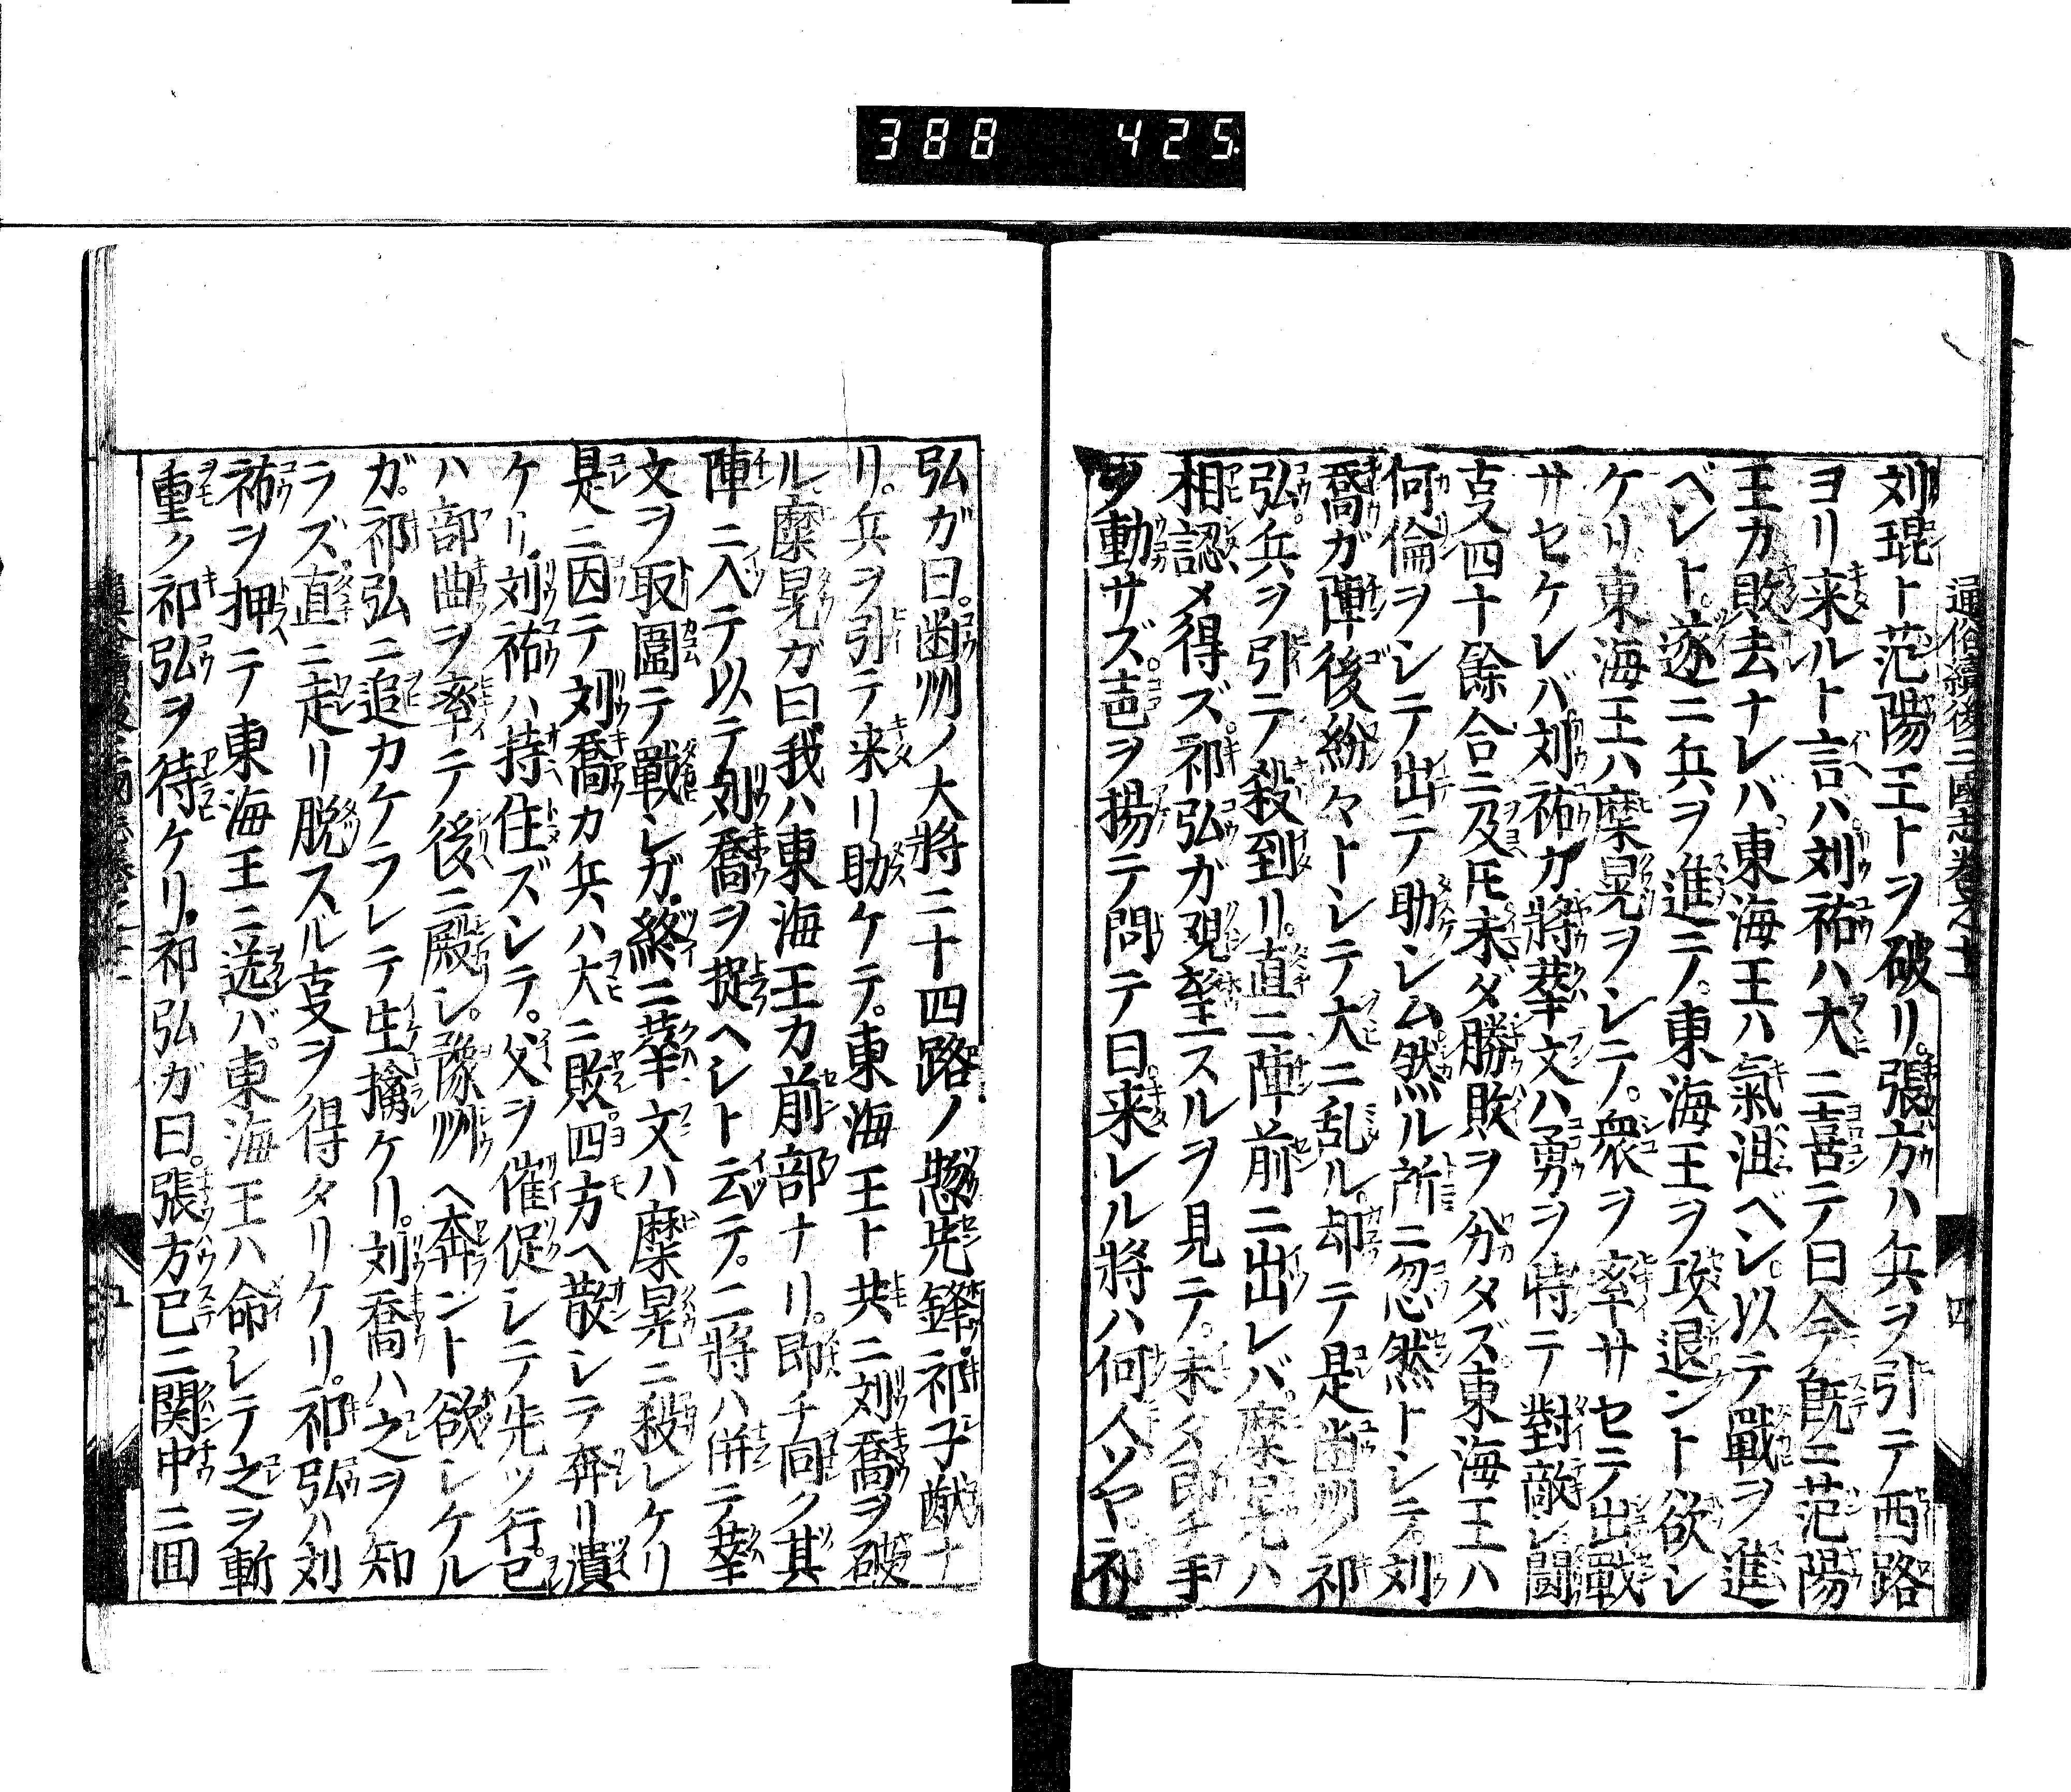 388 425
通俗續後三國志卷之十二
四
刘琨ト范陽王トヲ破リ。張方ハ兵ヲ引テ西路
ヨリ来ルト言ハ。刘祐ハ大ニ喜テ曰今既ニ范陽
王カ敗去ナレバ。東海王ハ氣沮ベシ。以テ戰ヲ進
ベシト。遂ニ兵ヲ進テ。東海王ヲ攻退ント欲シ
ケリ。東海王ハ糜晃ヲシテ。衆ヲ率サセテ出戰
サセケレバ刘祐カ將 文ハ勇ヲ恃テ對敵シ鬪
叓四十餘合ニ及圧未ダ勝敗ヲ分タズ東海王ハ
何倫ヲシテ出テ助シム然ル所ニ忽然トシテ。刘
喬ガ陣後紛々トシテ大ニ乱ル。却テ是幽州ノ祁
弘。兵ヲ引テ殺到リ。直ニ陣前ニ出レバ。糜晃ハ
相認メ得ズ。祁弘ガ 聖スルヲ見テ。未ダ即チ手
ヲ動サズ声ヲ揚テ問テ曰。来レル將ハ何人ソヤ。祁
弘ガ曰。幽州ノ大將二十四路ノ惣先鋒。祁子猷ナ
リ。兵ヲ引テ来リ助ケテ。東海王ト共ニ刘喬ヲ破
ル。糜晃ガ曰我ハ東海王カ前部ナリ。即チ同ク其
陣ニ入テ以テ刘喬ヲ捉ヘシト云テ。二將ハ併テ
文ヲ取圍テ戰シガ。終ニ 文ハ糜晃ニ殺レケリ
是ニ因テ刘喬カ兵ハ大ニ敗四方ヘ散シテ奔リ潰
ケリ。刘祐ハ持住ズシテ。父ヲ催促シテ先ツ行。已
ハ部曲ヲ率テ後ニ殿シ。豫州ヘ奔ント欲シケル
ガ。祁弘ニ追カケラレテ生擒ケリ。刘喬ハ之ヲ知
ラズ。直ニ走リ脱スル叓ヲ得タリケリ。祁弘ハ刘
祐ヲ押テ東海王ニ送バ。東海王ハ命シテ之ヲ斬
重ク祁弘ヲ待ケリ。祁弘ガ曰。張方已ニ関中ニ囬